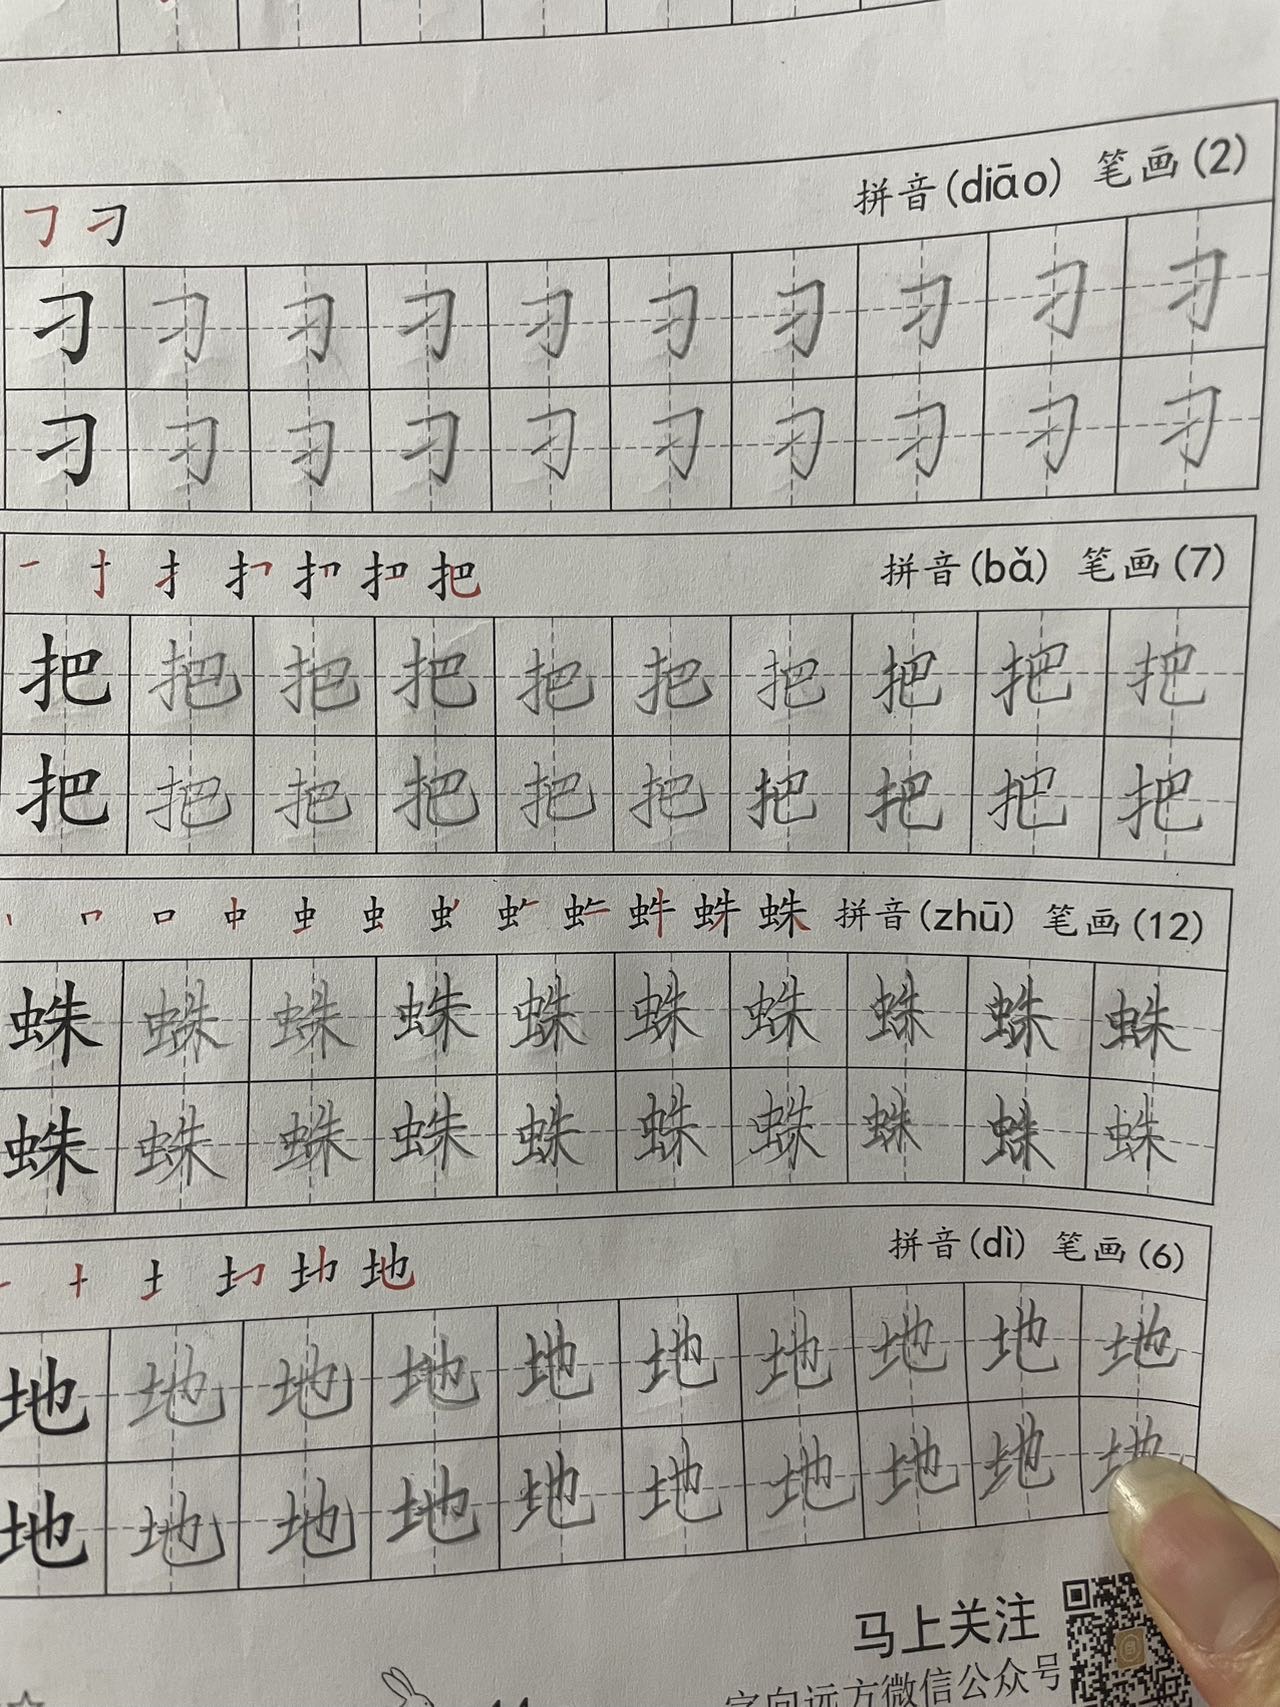 ㇆ 刁 拼音(diāo) 笔画(2)
刁 刁 刁 刁 刁 刁 刁 刁 刁 刁
刁 刁 刁 刁 刁 刁 刁 刁 刁 刁
扌 把 拼音(bǎ) 笔画(7)
把 把 把 把 把 把 把 把 把 把
把 把 把 把 把 把 把 把 把 把
口 中 虫 蛛 拼音(zhū) 笔画(12)
蛛 蛛 蛛 蛛 蛛 蛛 蛛 蛛 蛛 蛛
蛛 蛛 蛛 蛛 蛛 蛛 蛛 蛛 蛛 蛛
地 拼音(dì) 笔画(6)
地 地 地 地 地 地 地 地 地 地
地 地 地 地 地 地 地 地 地 地
马上关注
字向远方微信公众号